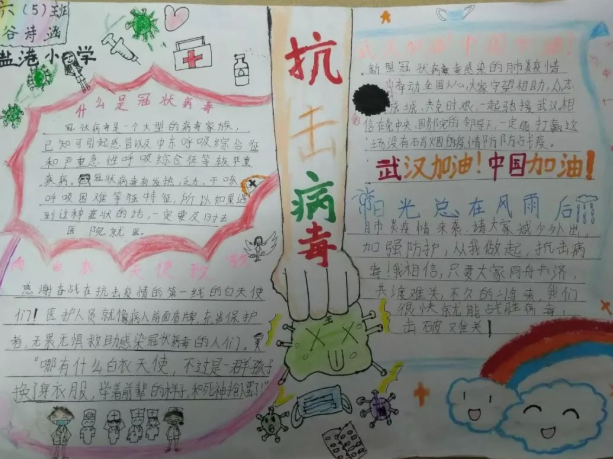 六（5）班
谷诗涵
盐港小学
什么是冠状病毒
冠状病毒是一个大型的病毒家族，
已知可引起感冒以及中东呼吸综合征
和严重急性呼吸综合征等较严重
疾病。冠状病毒有发热、乏力、干咳、
呼吸困难等征特征，所以如果遇
到这种症状的话，一定要及时去
医院就医。
感谢奋战在抗击疫情的第一线的白天使
们！医护人员就像病人前面盾牌，在当保护
者，无畏无惧救助感染冠状病毒的人们。
“哪有什么白衣天使，不过是一群孩子
换了身衣服，学着前辈的样子，和死神抢人罢！”
抗击病毒
武汉加油中国加油！
新型冠状病毒感染的肺炎疫情
牵动全国人心，大家守望相助，众志
成城，共克时艰，一起驰援武汉，相
信在党中央、国务院的领导下，一定能打赢这
场没有硝烟的疫情防控防占役。
武汉加油！中国加油！
阳光总在风雨后
肺炎疫情来袭，请大家减少外出，
加强防护，从我做起，抗击病
毒！我相信，只要大家同舟共济，
共渡难关，不久的将来，我们
很快就能战胜病毒，
击破难关！